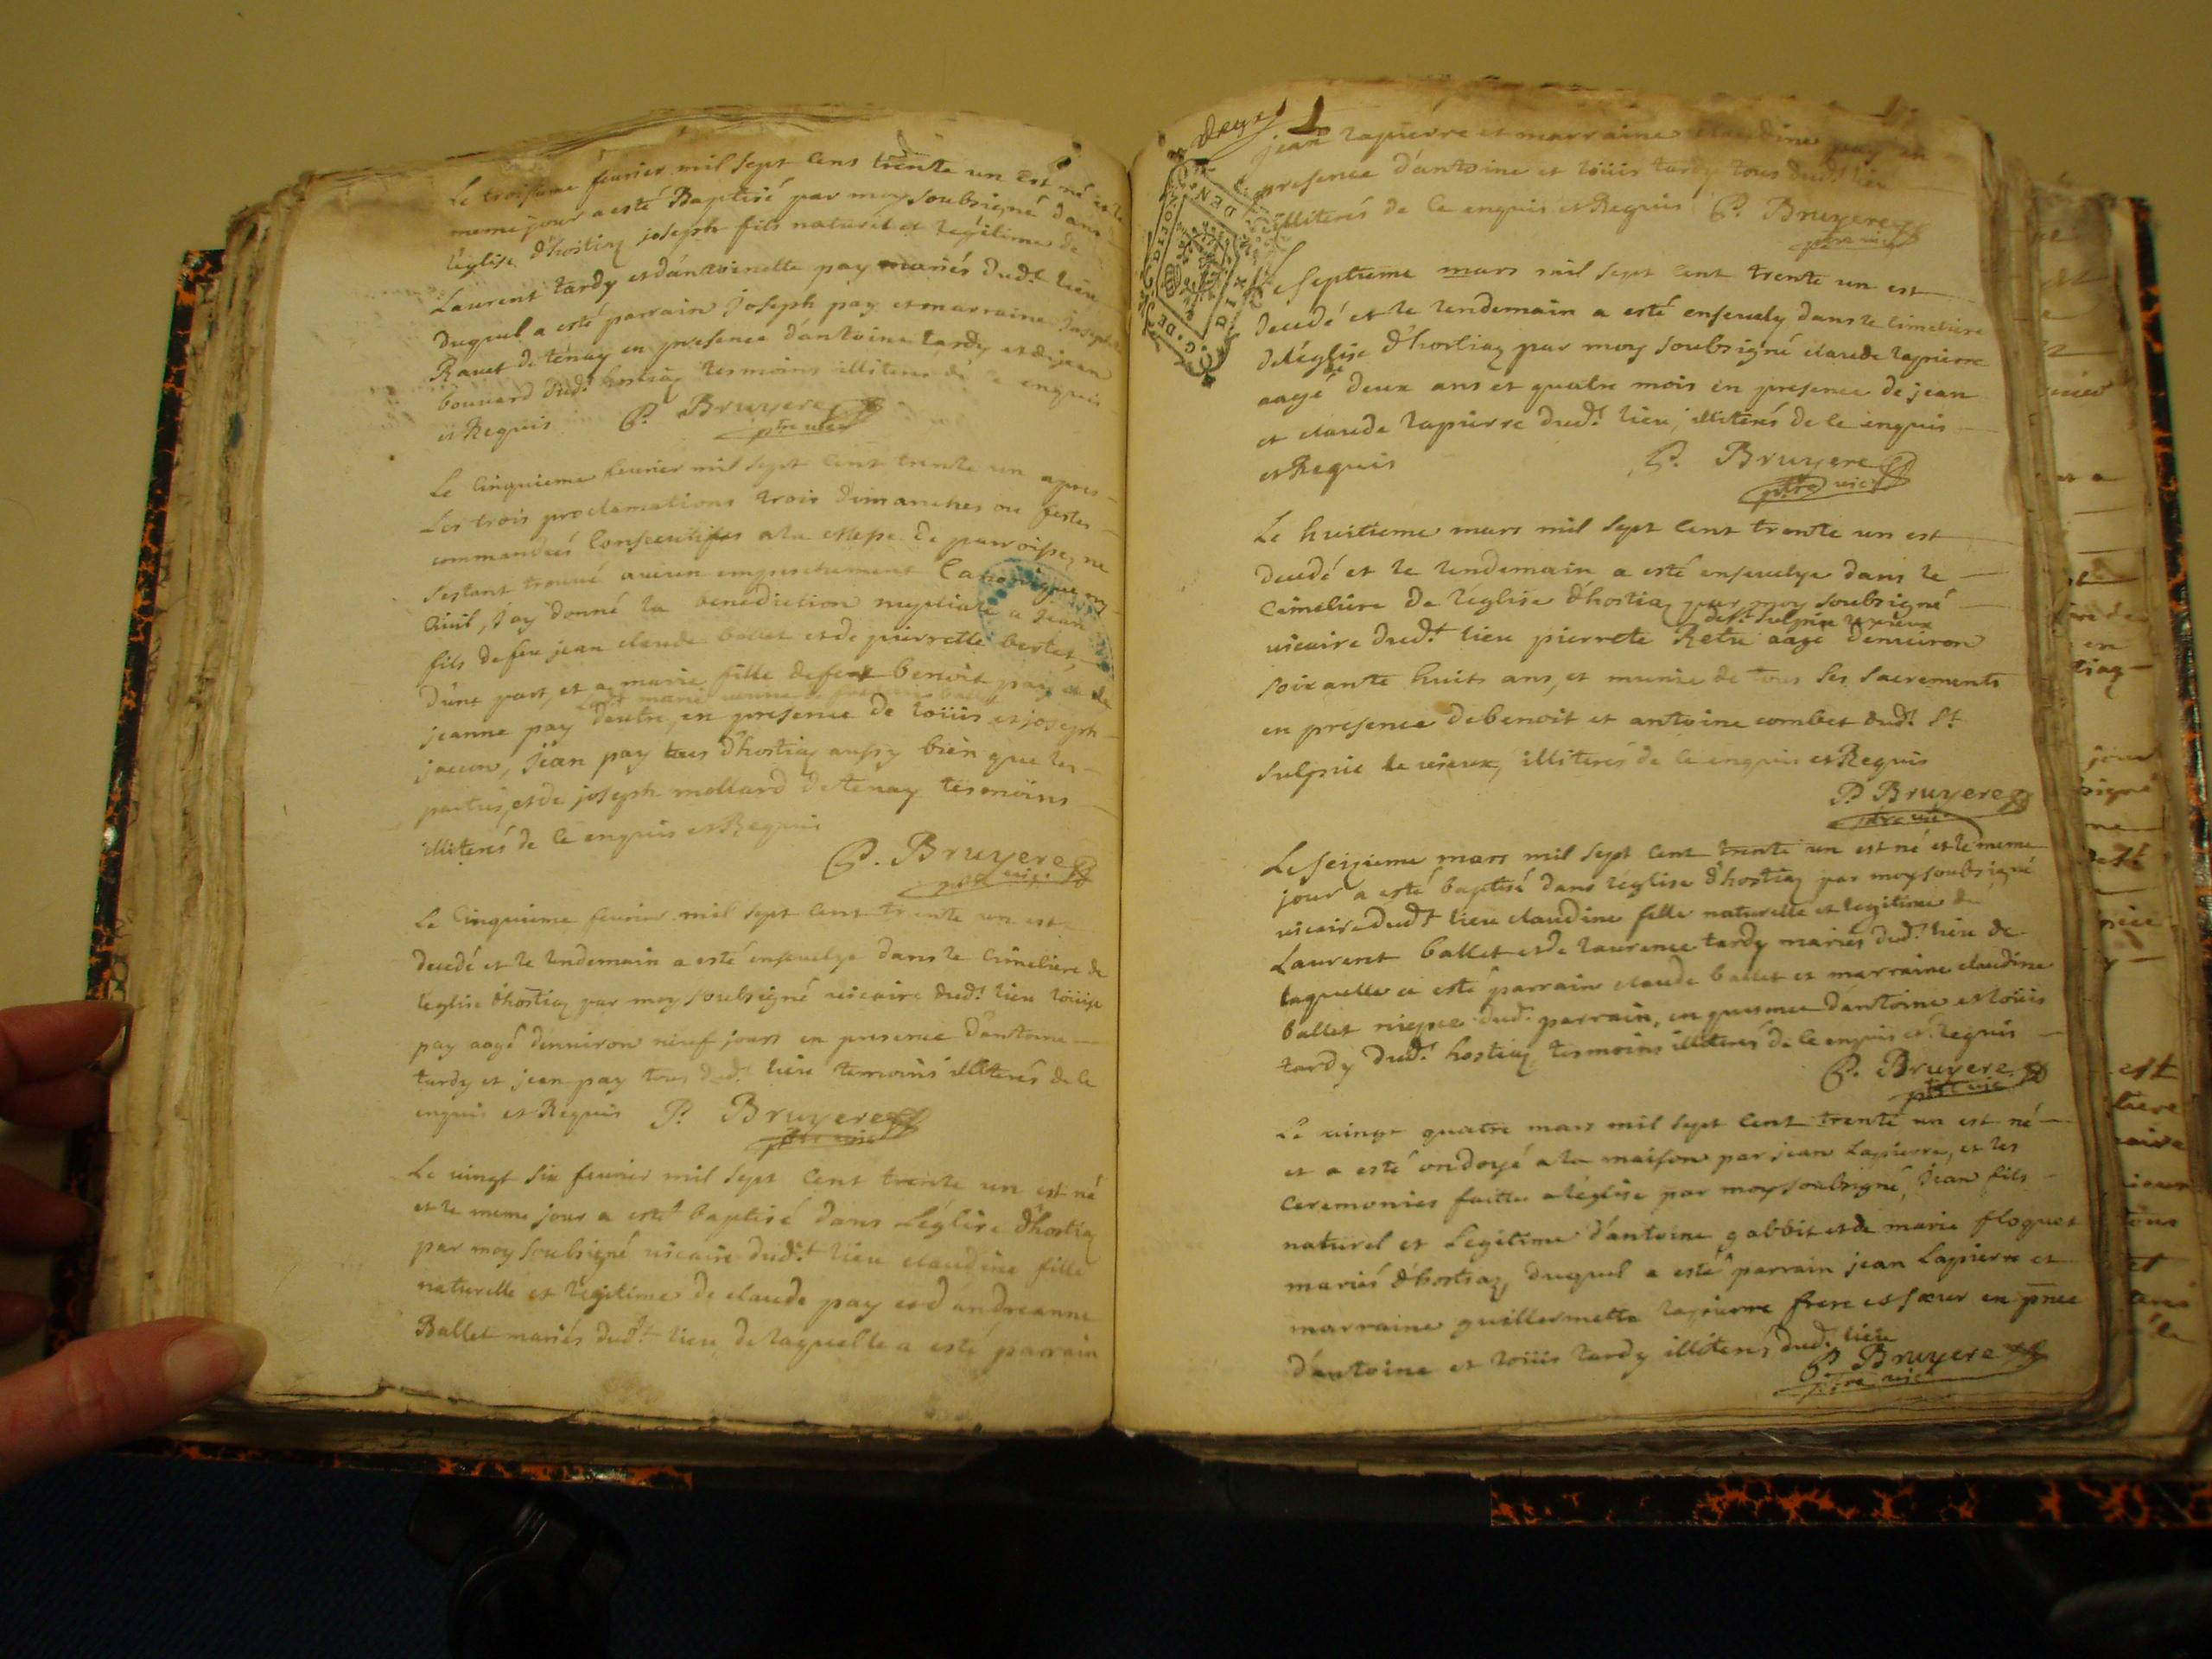 Le troisieme feurier mil sept cens trente un est né et le
meme jour a esté Baptisé par moy soubsigné dans
l'église d'hostiaz joseph fils naturél et légitime de
Laurent tardy et d'antoinette pay mariés dudt lieu
duquel a esté parrain joseph pay et marraine josephte
Ravet de ténay en presence d'antoine tardy et de jean
bonnard dudt hostiaz tesmoins illiterés de ce enquis
et Requis P. Bruyere
ptre vicre
Le Cinquieme feurier mil sept Cent trente un apres
Les trois proclamations trois dimanches ou festes
commandées Consecutifes a la Messe de parroisse, ne
s'estant trouué aucun empeschement Canonique ny
Ciuil, j'ay donné la benediction nuptiale a jean
fils de feu jean claude ballet et de pierrette bertet,
d'une part, et a marie fille de feu benoit pay et de
jeanne pay d'autre, en presence de loüis et joseph
juenon, jean pay tous d'hostiaz aussy bien que les
parties, et de joseph mollard de tenay tesmoins
illiterés de ce enquis et Requis
P. Bruyere
ptre vic.
Le Cinquieme feurier mil sept Cent trente un est
decedé et le lendemain a esté enseuelye dans le Cimetiere de
l'eglise d'hostiaz par moy soubsigné vicaire dudt lieu loüise
pay aagé d'enuiron neuf jours en presence d'antoine
tardy et jean pay tous dudt lieu temoins illiterés de ce
enquis et Requis P. Bruyere
ptre vic
Le vingt six feurier mil sept Cent trente un est né
et le meme jour a esté baptisé dans L'église d'hostiaz
par moy soubsigné vicaire dudt lieu claudine fille
naturelle et légitime de claude pay et d'andreanne
Ballet mariés dudt lieu, de laquelle a esté parrain
jean lapierre et marraine claudine pay en
presence d'antoine et loüis tardy tous dudt lieu
illiterés de ce enquis et Requis P. Bruyere
ptre vic
Le septieme mars mil sept cent trente un est
decedé et le lendemain a esté enseuely dans le cimetiere
de l'église d'hostiaz par moy soubsigné claude lapierre
aagé deux ans et quatre mois en presence de jean
et claude lapierre dudt lieu, illiterés de ce enquis
et Requis P. Bruyere
ptre vic
Le huitieme mars mil sept Cent trente un est
decedé et le lendemain a esté enseuelye dans le
Cimetiere de l'église d'hostiaz par moy soubsigné
de St Sulpice le vieux
vicaire dudt lieu pierrete Retu aagé d'enuiron
soixante huits ans, et munie de tous ses sacrements
en presence de benoit et antoine combet dudt St
sulpice le vieux, illiterés de ce enquis et Requis
P. Bruyere
ptre vic
Le seizieme mars mil sept Cent trente un est né et le meme
jour a esté baptisé dans l'église d'hostiaz par moy soubsigné
vicaire dudt lieu claudine fille naturelle et legitime de
Laurent ballet et de laurence tardy mariés dudt lieu de
laquelle a esté parrain claude ballet et marraine claudine
ballet niepce dudt parrain, en presence d'antoine et loüis
tardy dudt hostiaz tesmoins illiterés de ce enquis et Requis
P. Bruyere
ptre vic
Le vingt quatre mars mil sept Cent trente un est né
et a esté ondoyé a la maison par jean Lapierre, et les
Ceremonies faittes a l'église par moy soubsigné, jean fils
naturel et Legitime d'antoine gabbit et de marie floquet
mariés d'hostiaz, duquel a esté parrain jean Lapierre et
marraine guillermette lapierre frere et sœur en pnce
d'antoine et loüis tardy illiterés dudt lieu
P. Bruyere
ptre vic